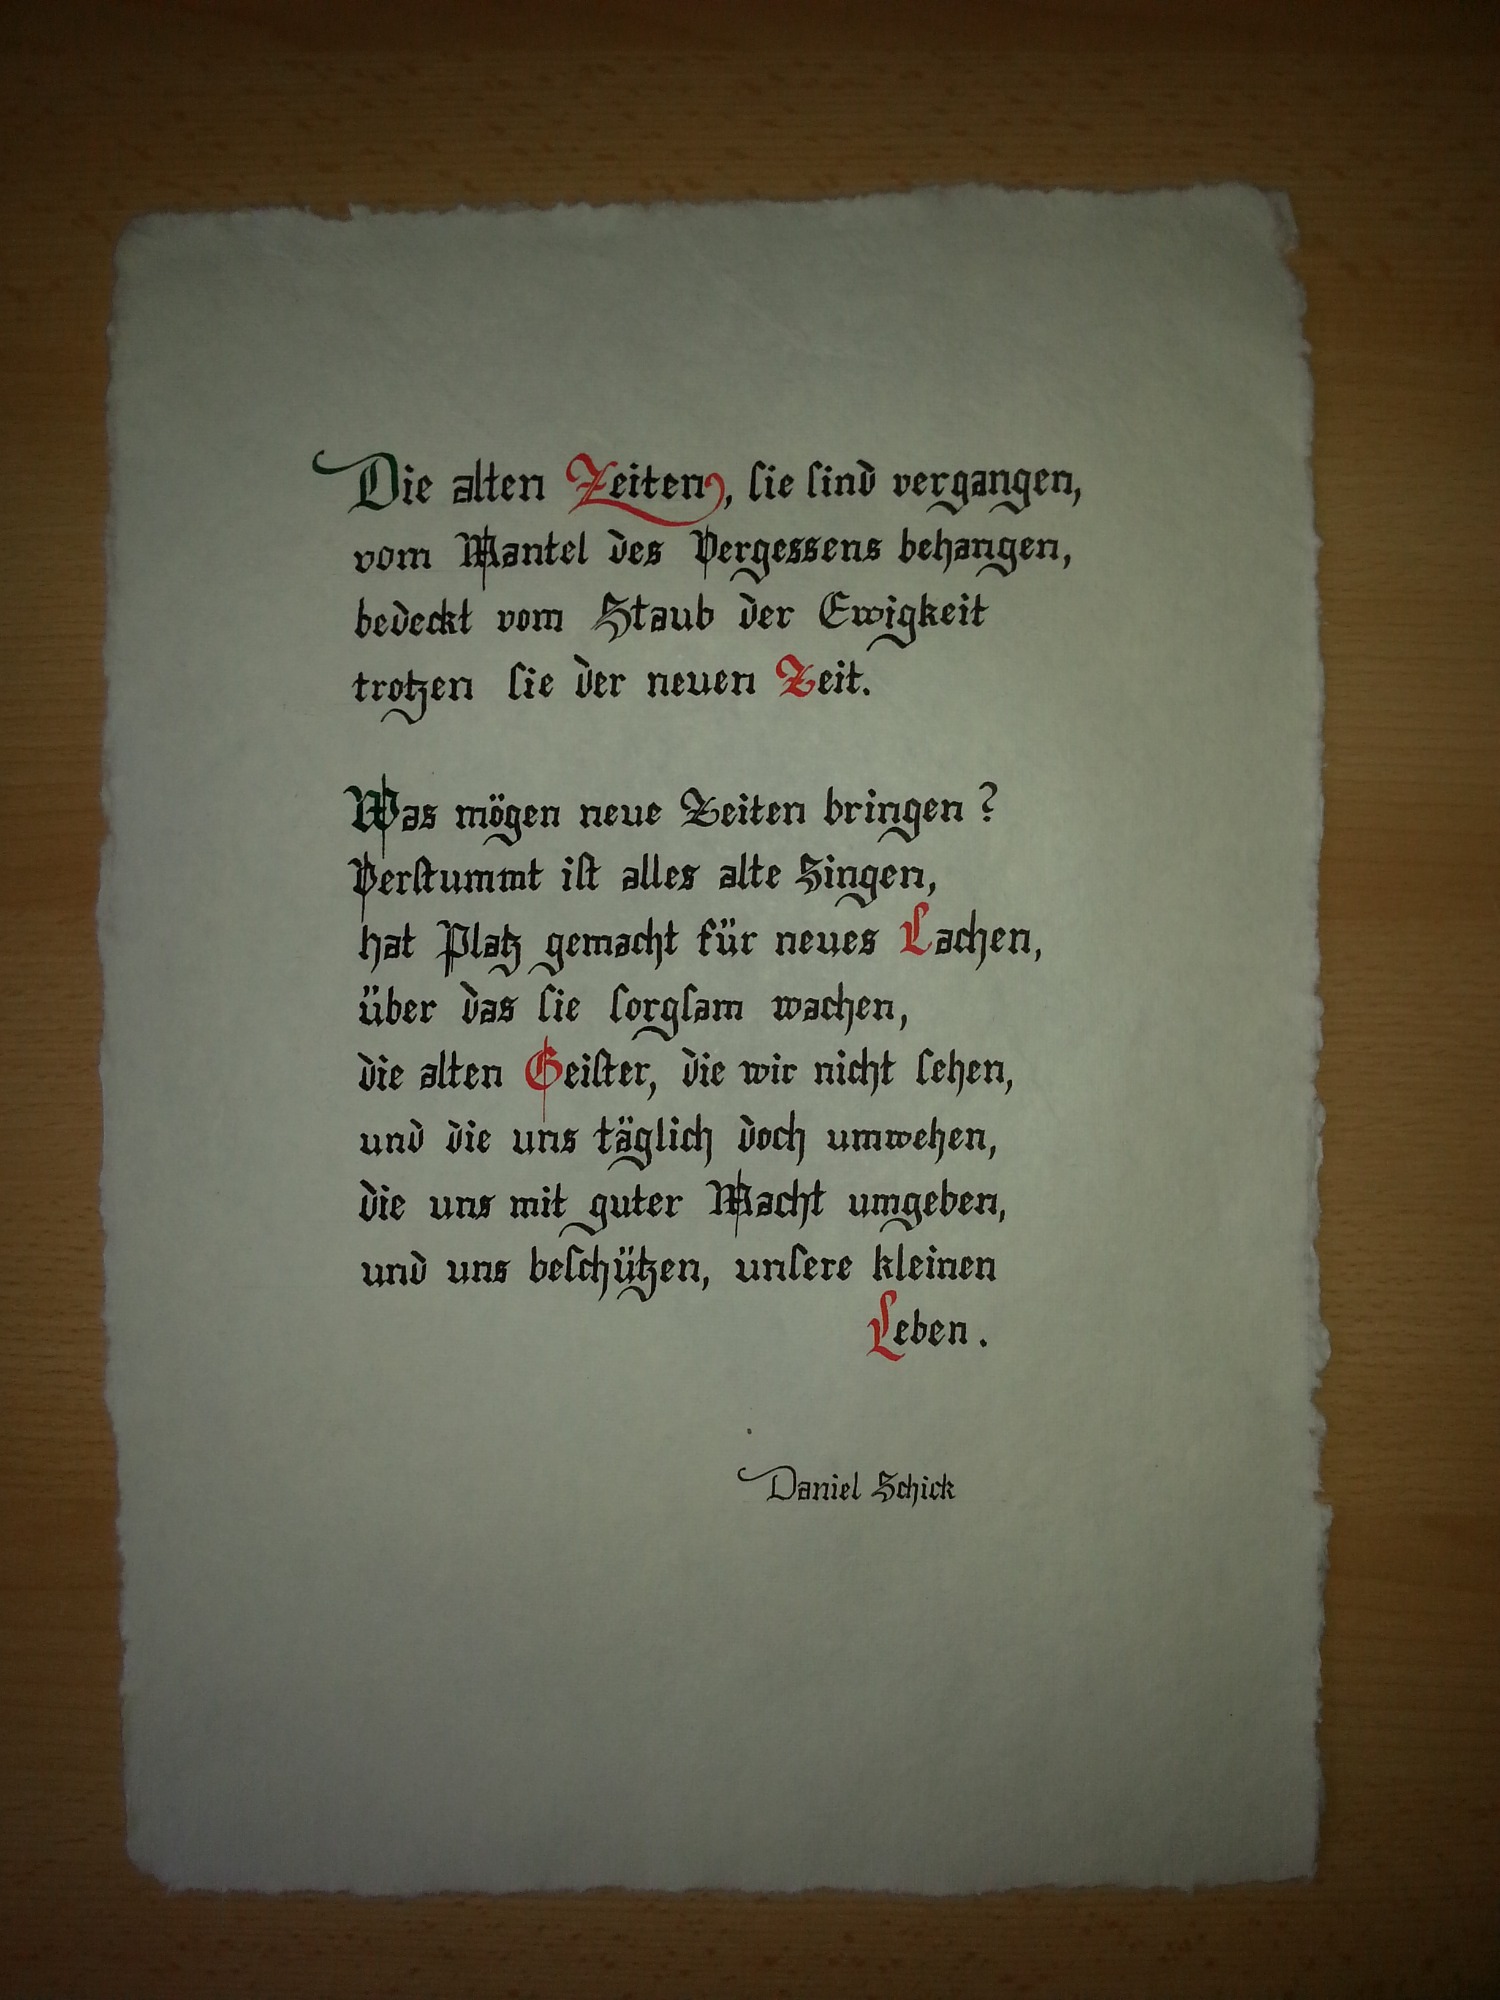 Die alten Zeiten, sie sind vergangen,
vom Mantel des Vergessens behangen,
bedeckt vom Staub der Ewigkeit
trotzen sie der neuen Zeit.
Was mögen neue Zeiten bringen?
Verstummt ist alles alte Singen,
hat Platz gemacht für neues Lachen,
über das sie sorgsam wachen,
die alten Geister, die wir nicht sehen,
und die uns täglich doch umwehen,
die uns mit guter Macht umgeben,
und uns beschützen, unsere kleinen
Leben.
Daniel Schick